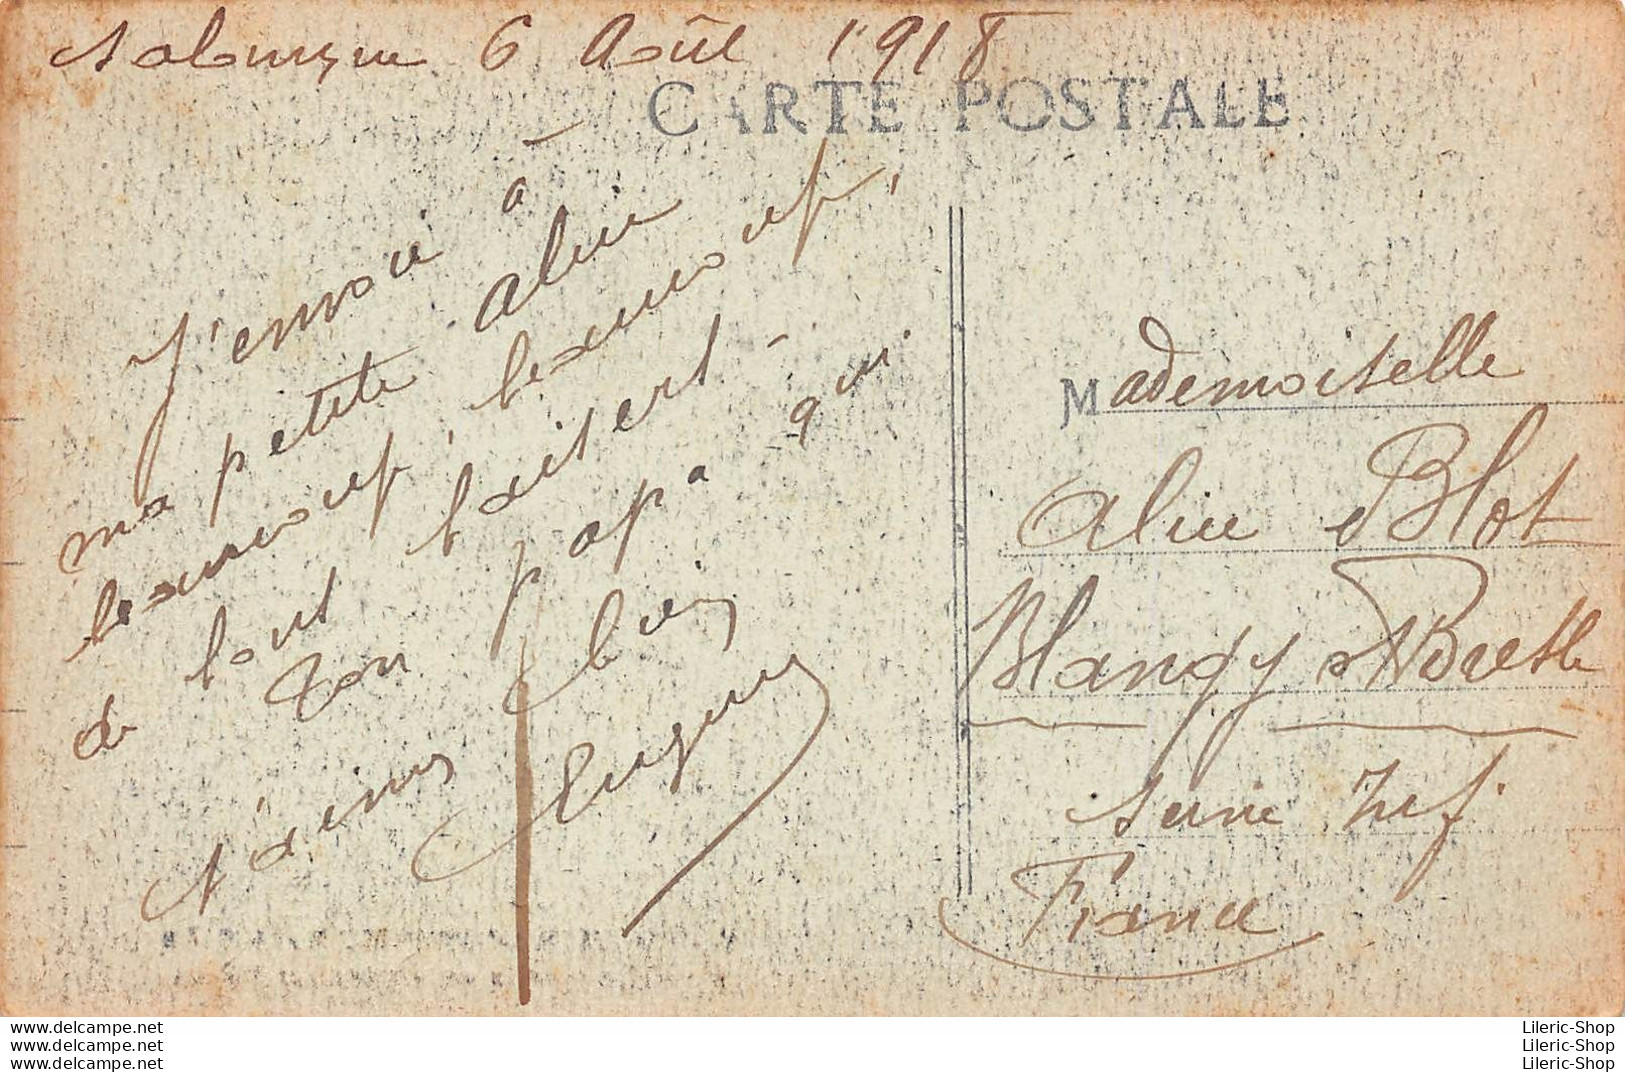 Salonique 6 Août 1918
CARTE POSTALE
J'envoie à
ma petite Aline
beaucoup, beaucoup,
de bons baisers
Ton papa qui
t'aime bien
Eugène
Mademoiselle
Aline Blot
Blangy s/ Bresle
Seine Inf
France
www.delcampe.net
www.delcampe.net
www.delcampe.net
Lileric-Shop
Lileric-Shop
Lileric-Shop